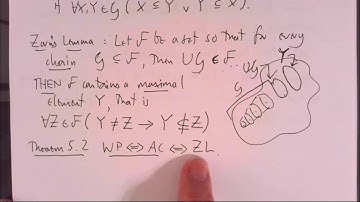 ∀X,Y∈𝒢 (X ⊆ Y ∨ Y ⊆ X)
Zorn's Lemma : Let ℱ be a set so that for every
chain 𝒢 ⊆ ℱ, then ∪𝒢 ∈ ℱ.
THEN ℱ contains a maximal
element Y, that is
∀Z∈ℱ (Y ≠ Z → Y ⊈ Z)
Theorem 5.2 WP ⇔ AC ⇔ ZL.
Y
∪𝒢
𝒢